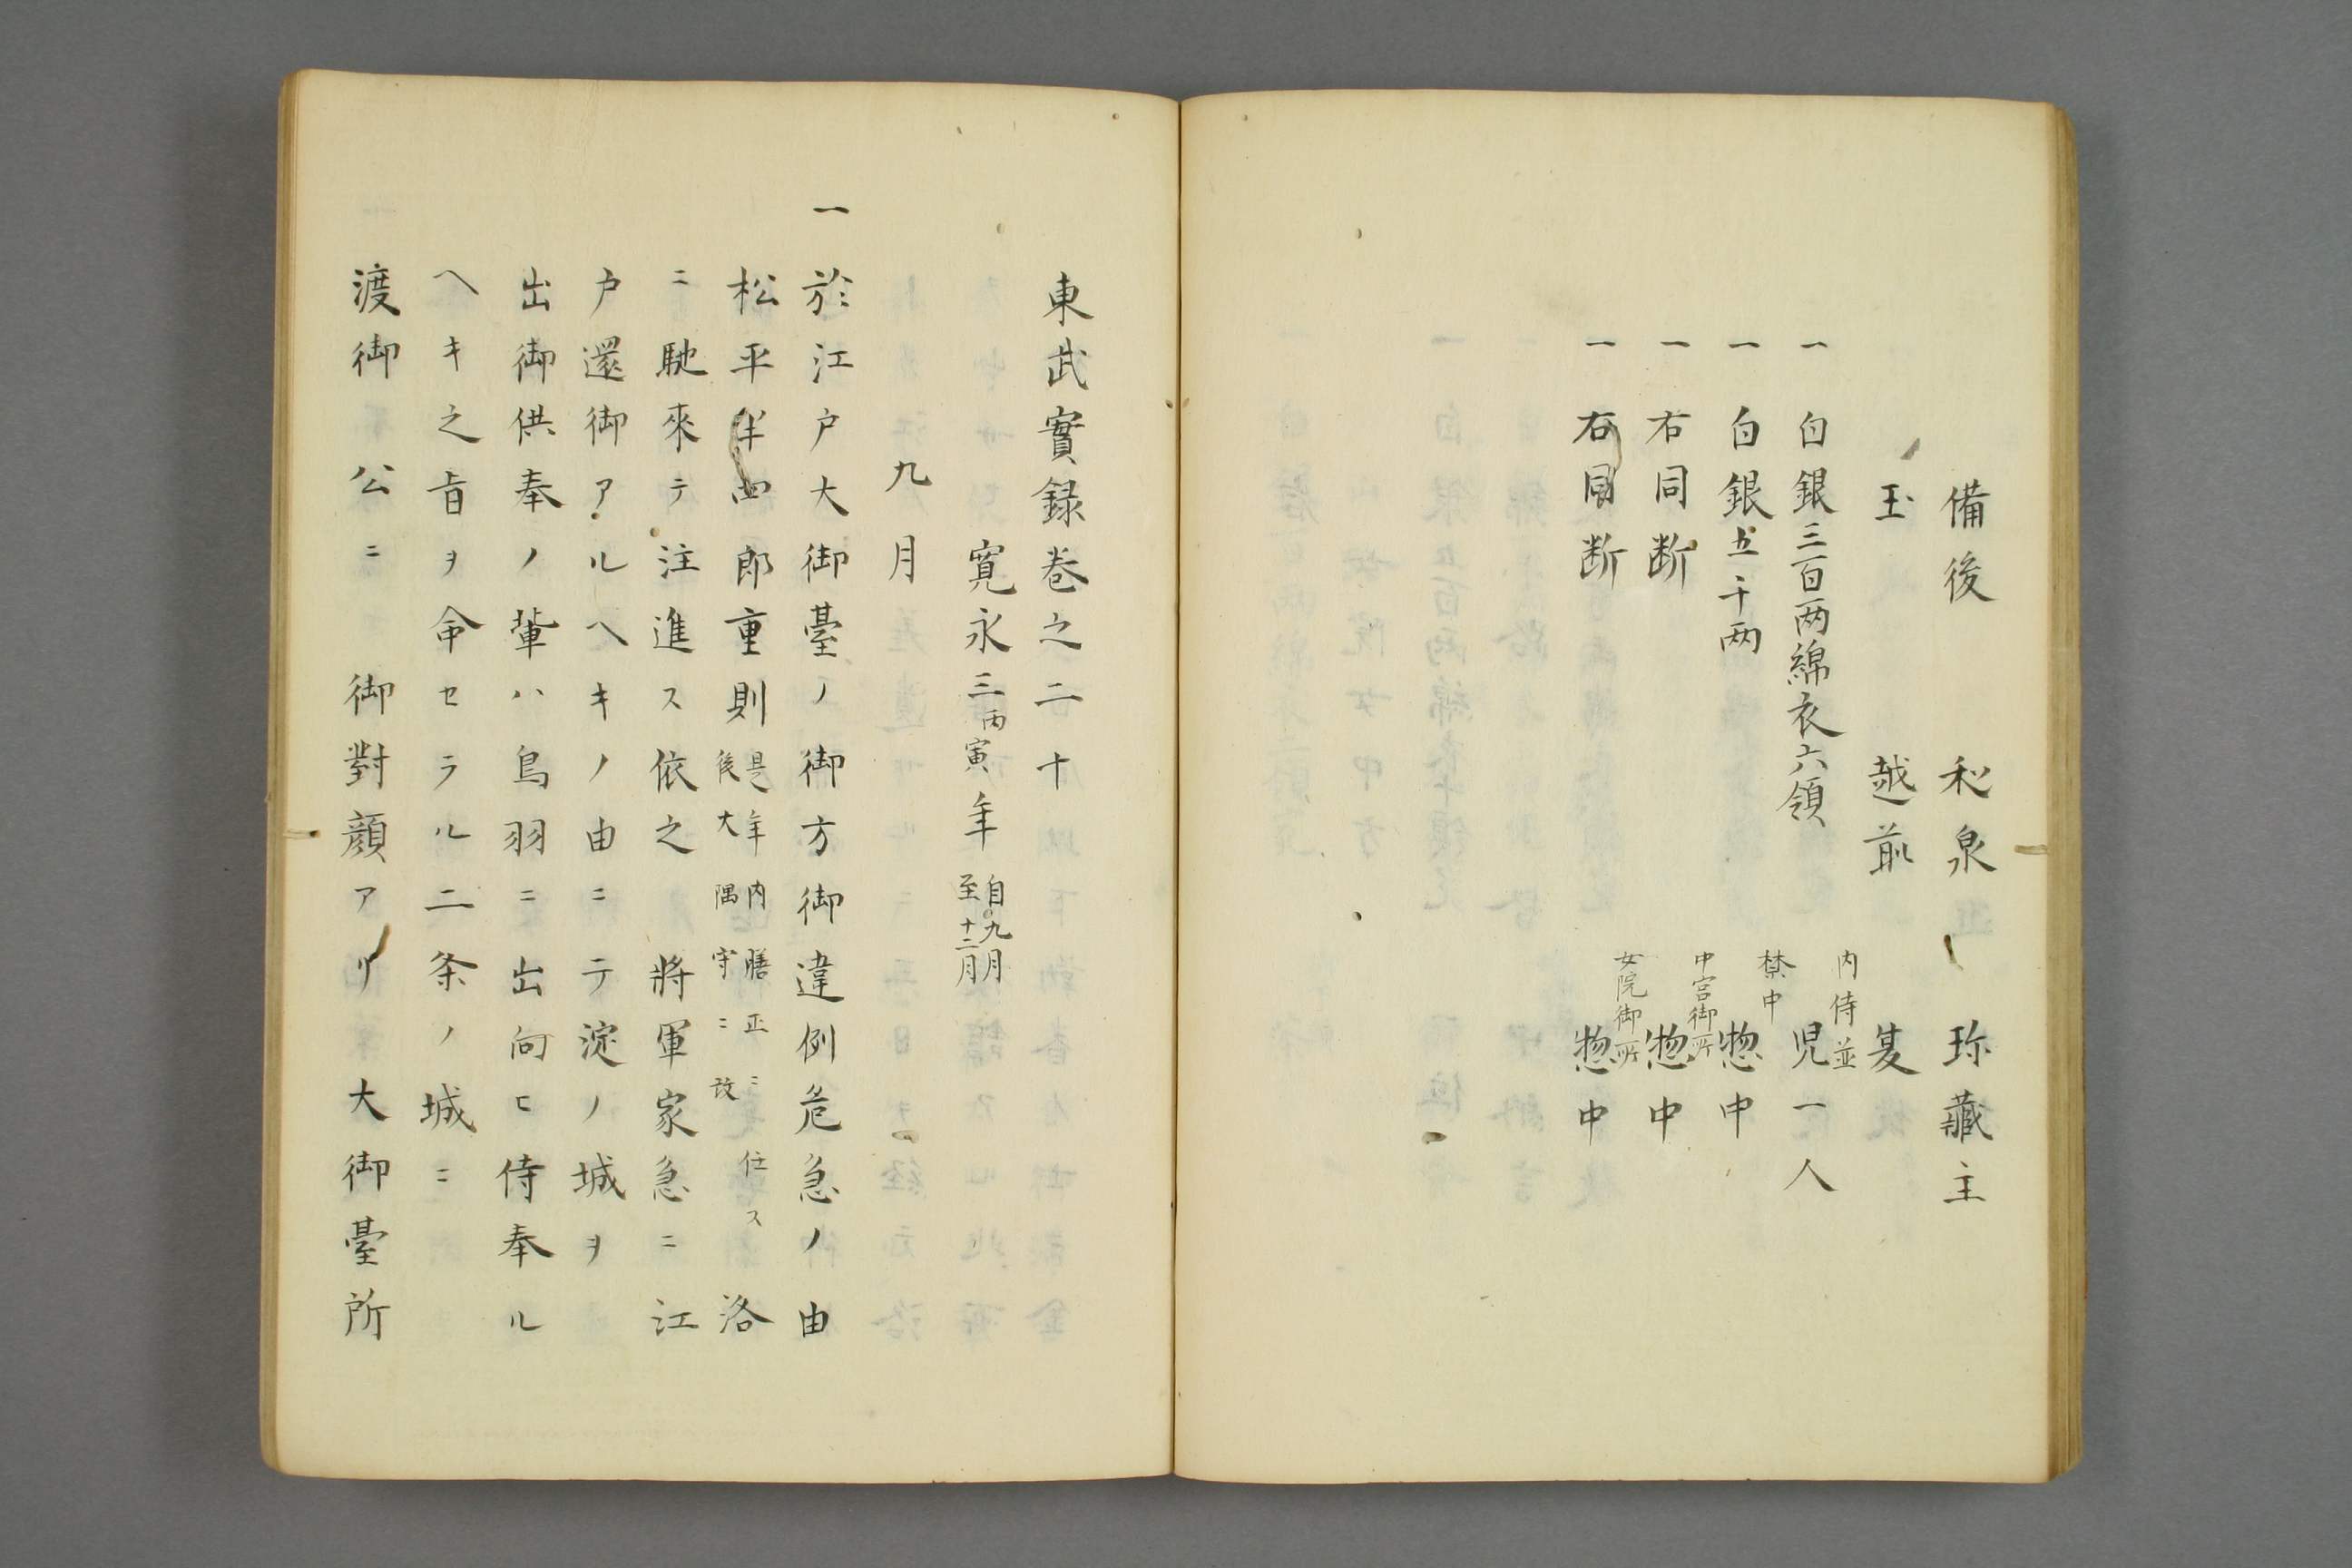 備後　和泉　珎藏主
玉　越前　夏
一　白銀三百两綿衣六領　内侍並　児一人
一　白銀五千两　禁中　惣中
一　右同断　中宮御所　惣中
一　右同断　女院御所　惣中
東武實録巻之二十
寛永三丙寅年　自九月至十二月
九月
一　於江戸大御臺ノ御方御違例危急ノ由
松平半四郎重則是年内膳正ニ任ス後大隅守ニ改洛
ニ馳來テ注進ス依之　將軍家急ニ江
戸還御アルヘキノ由ニテ淀ノ城ヲ
出御供奉ノ輩ハ鳥羽ニ出向ヒ侍奉ル
ヘキ之旨ヲ命セラル二条ノ城ニ
渡御　公ニ　御對顔アリ大御臺所